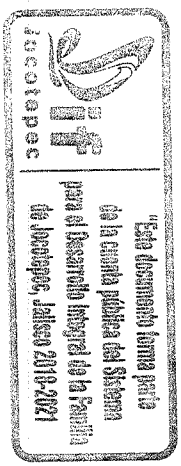 dif
jocotepec
"Este documento forma parte
de la cuenta pública del Sistema
para el Desarrollo Integral de la Familia
de Jocotepec, Jalisco 2018-2021